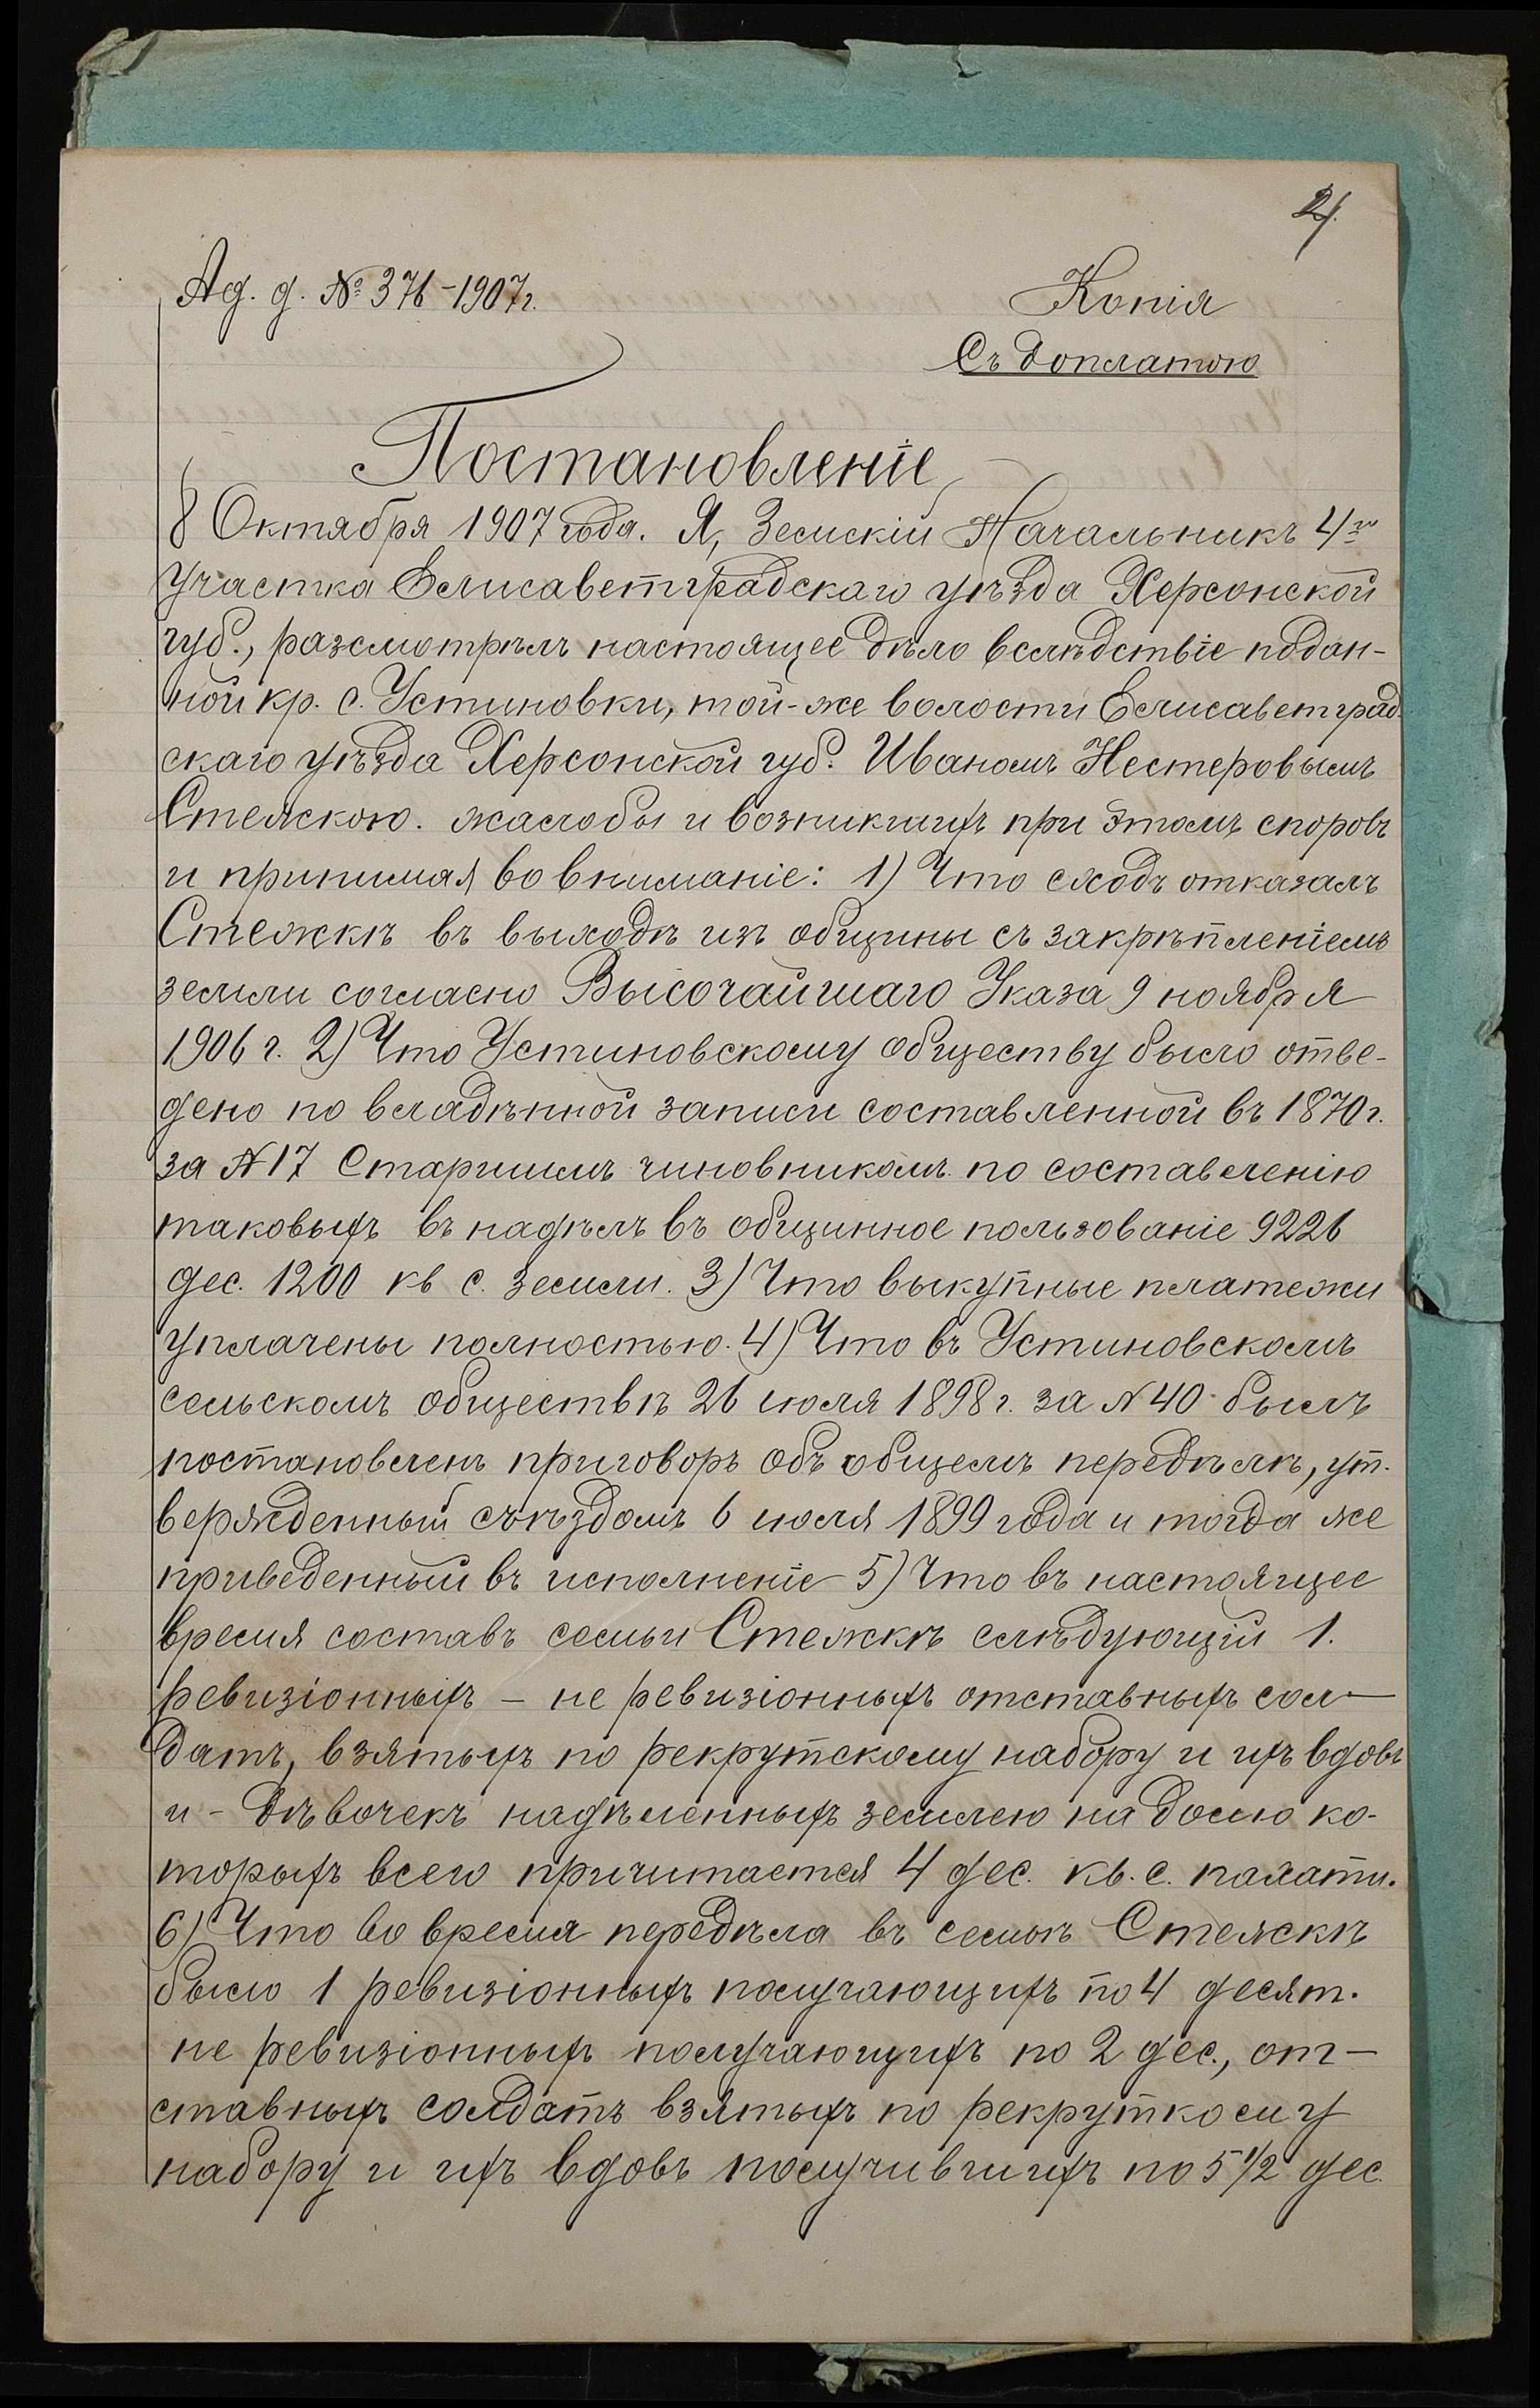 2/.
Ад. д. № 376-1907г.
Копія
Съ доплатою
Постановленіе
8 Октября 1907 года. Я, Земскій Начальникъ 4го
участка Елисаветградскаго уѣзда Херсонской
губ., разсмотрѣлъ настоящее дѣло вслѣдствіе подан-
ной кр. с. Устиновки, той-же волости Елисаветград-
скаго уѣзда Херсонской губ. Иваномъ Нестеровымъ
Стежкою. жалобы и возникшихъ при этомъ споровъ
и принимая во вниманіе: 1) Что сходъ отказалъ
Стежкѣ въ выходѣ изъ общины съ закрѣпленіемъ
земли согласно Высочайшаго Указа 9 ноября
1906 г. 2) Что Устиновскому обществу было отве-
дено по владѣнной записи составленной въ 1870 г.
за № 17 Старшимъ чиновникомъ по составленію
таковыхъ въ надѣлъ въ общинное пользованіе 9226
дес. 1200 кв с. земли. 3) Что выкупные платежи
уплачены полностью. 4) Что въ Устиновскомъ
сельскомъ обществѣ 26 іюля 1898 г. за № 40 былъ
постановленъ приговоръ объ общемъ передѣлѣ, ут-
вержденный съѣздомъ 6 іюля 1899 года и тогда же
приведенный въ исполненіе 5) Что въ настоящее
время составъ семьи Стежкѣ слѣдующій 1.
ревизіонныхъ – не ревизіонныхъ отставныхъ сол-
датъ, взятыхъ по рекрутскому набору и ихъ вдовъ
и – дѣвочекъ надѣленныхъ землею на долю ко-
торыхъ всего причитается 4 дес. кв. с. палати.
6) Что во время передѣла въ семьѣ Стежкѣ
было 1 ревизіонныхъ получающихъ по 4 десят.
не ревизіонныхъ получающихъ по 2 дес., от-
ставныхъ солдатъ взятыхъ по рекруткому
набору и ихъ вдовъ получившихъ по 5 1/2 дес.